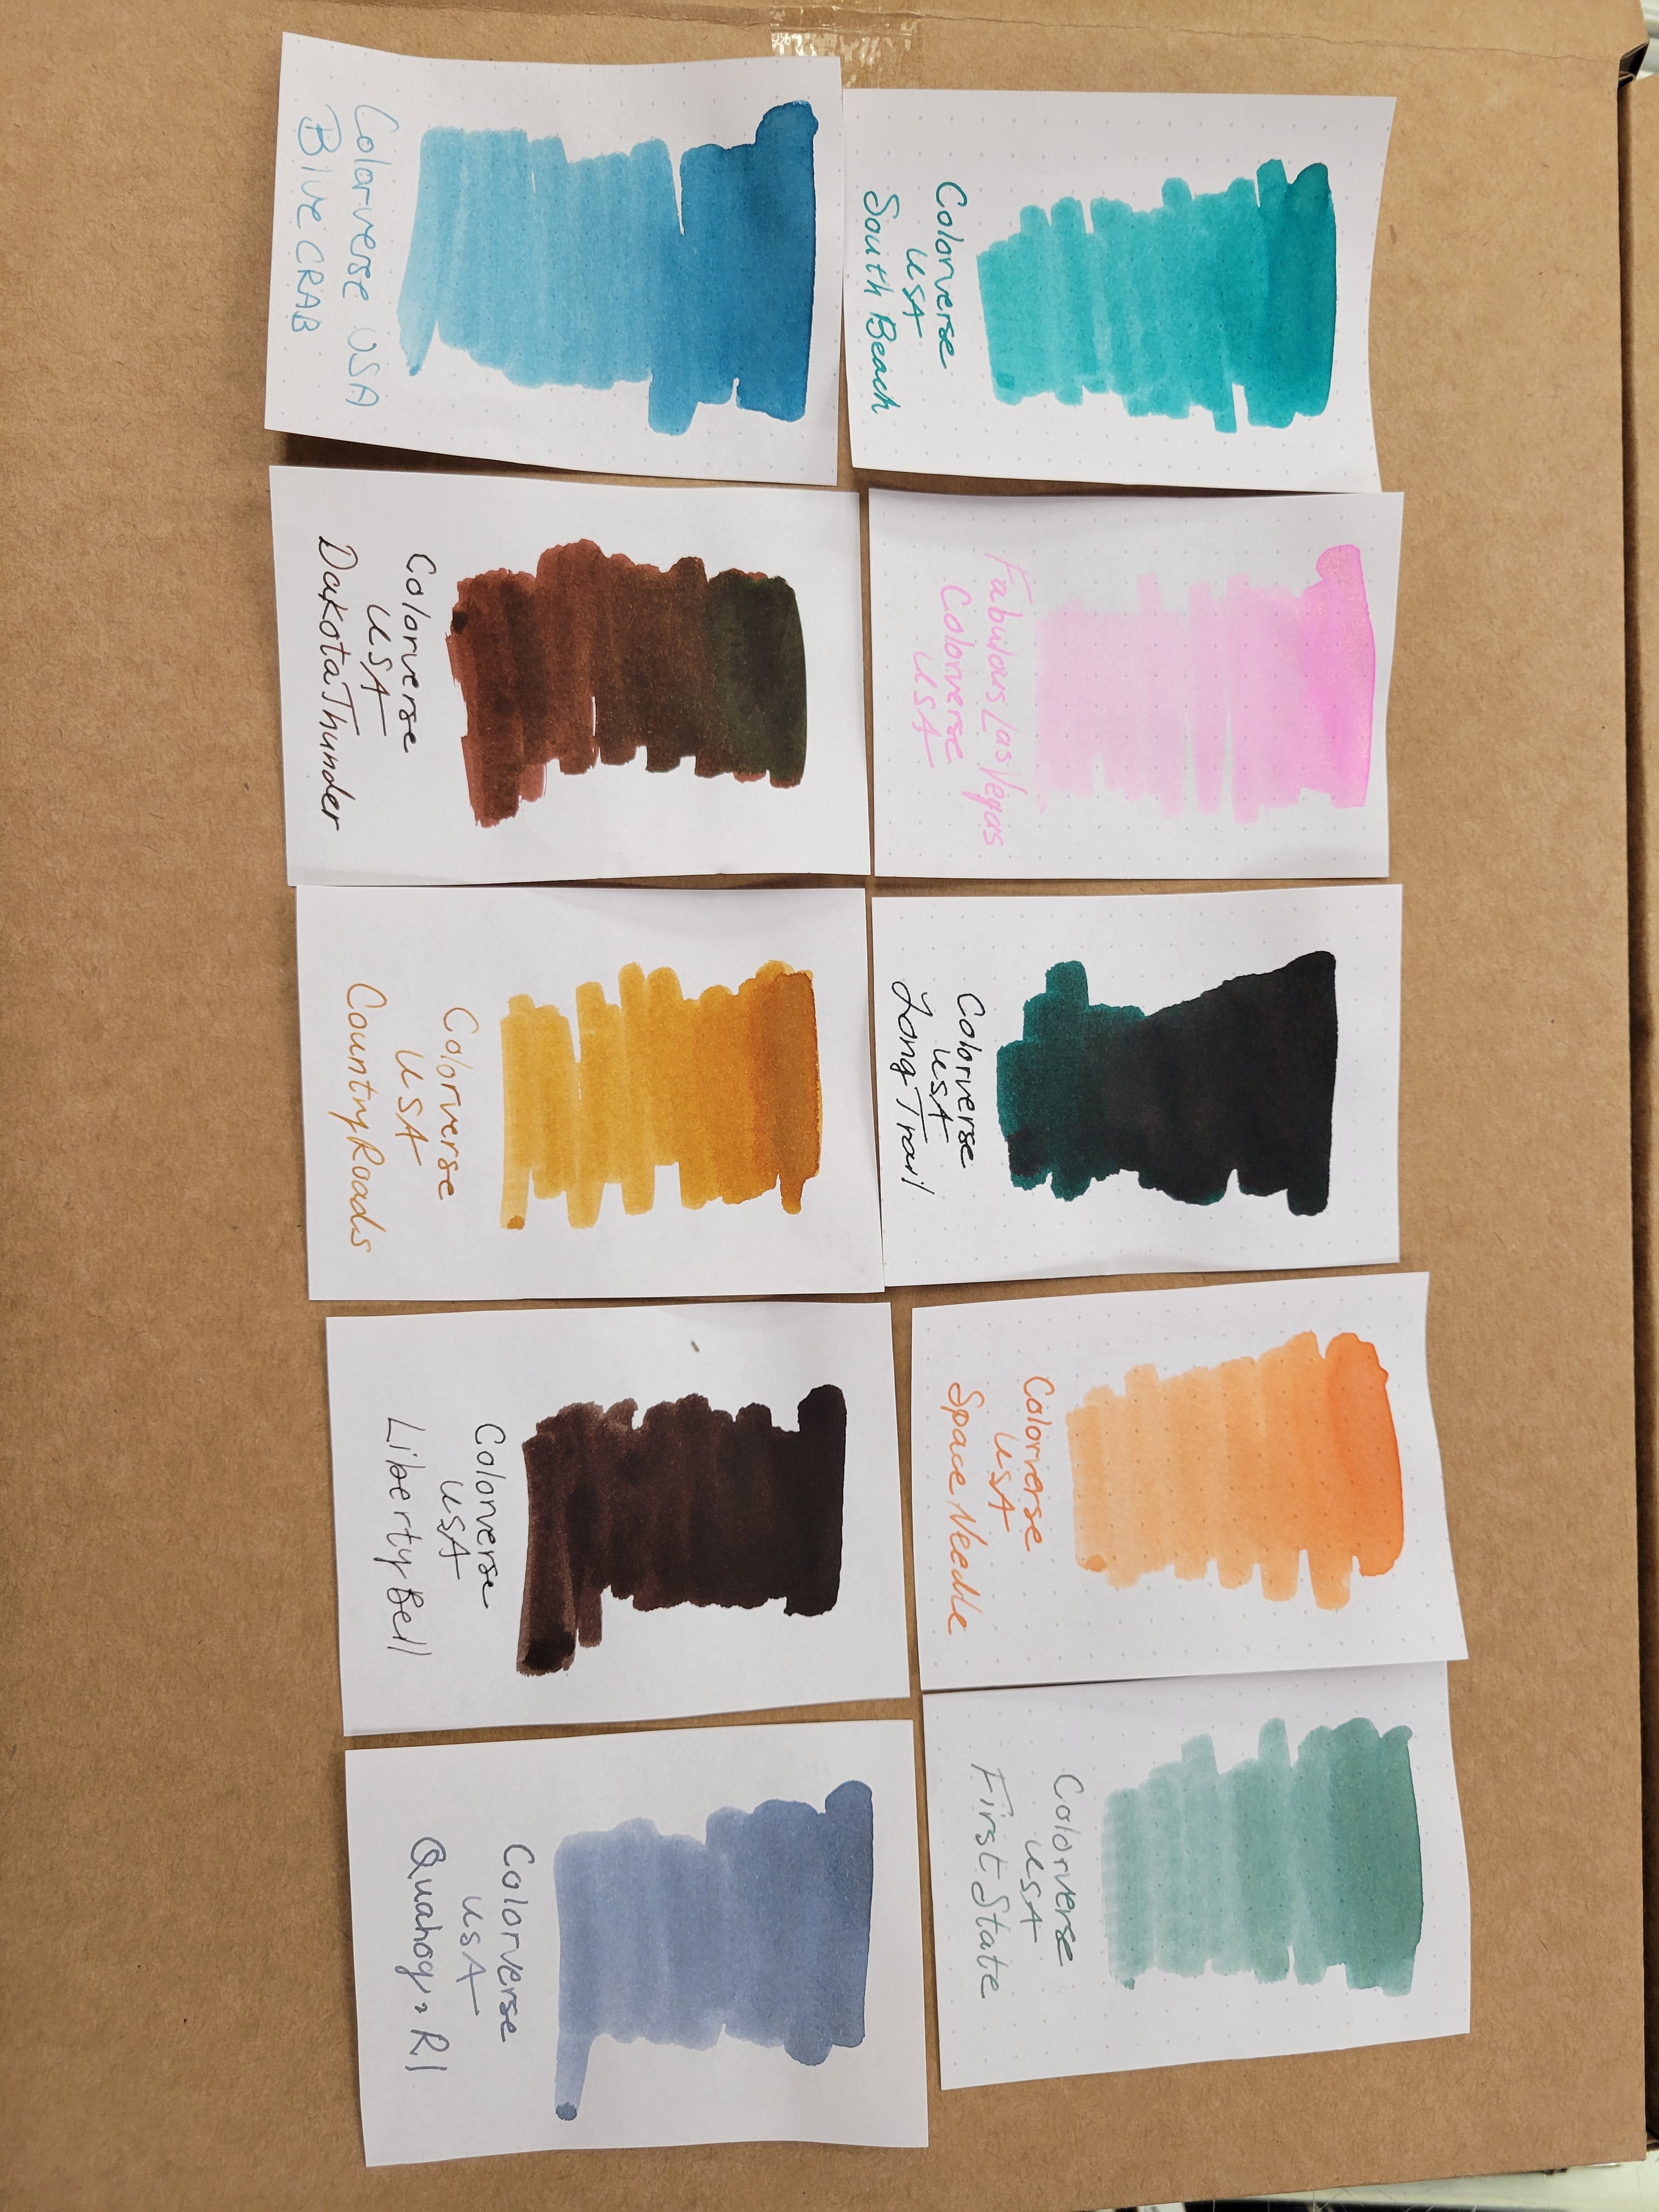 Colorverse
USA
South Beach
Fabulous Las Vegas
Colorverse
USA
Colorverse
USA
Long Trail
Colorverse
USA
Space Needle
Colorverse
USA
First State
Colorverse USA
Blue CRAB
Colorverse
USA
Dakota Thunder
Colorverse
USA
Country Roads
Colorverse
USA
Liberty Bell
Colorverse
USA
Quahog, RI